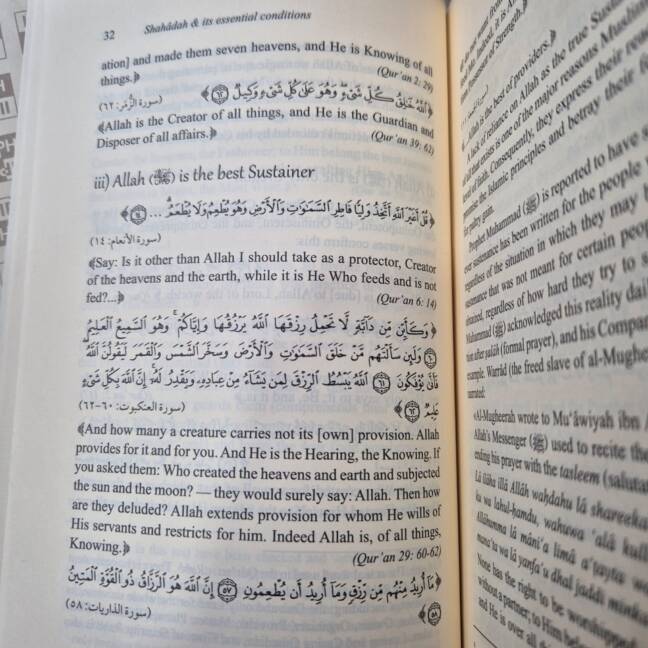 32
Shahâdah & its essential conditions
ation] and made them seven heavens, and He is Knowing of all
things.﴿
(Qur'an 2: 29)
﴿اللَّهُ خَالِقُ كُلِّ شَيْءٍ وَهُوَ عَلَى كُلِّ شَيْءٍ وَكِيلٌ ٦٢﴾
(سورة الزُّمَر: ٦٢)
﴾Allah is the Creator of all things, and He is the Guardian and
Disposer of all affairs.﴿
(Qur'an 39: 62)
iii) Allah (ﷻ) is the best Sustainer
﴿قُلْ أَغَيْرَ اللَّهِ أَتَّخِذُ وَلِيًّا فَاطِرِ السَّمَٰوَٰتِ وَالْأَرْضِ وَهُوَ يُطْعِمُ وَلَا يُطْعَمُ ... ١٤﴾
(سورة الأنعام: ١٤)
﴾Say: Is it other than Allah I should take as a protector, Creator
of the heavens and the earth, while it is He Who feeds and is not
fed?...﴿
(Qur'an 6: 14)
﴿وَكَأَيِّن مِّن دَابَّةٍ لَّا تَحْمِلُ رِزْقَهَا اللَّهُ يَرْزُقُهَا وَإِيَّاكُمْ وَهُوَ السَّمِيعُ الْعَلِيمُ
٦٠ وَلَئِن سَأَلْتَهُم مَّنْ خَلَقَ السَّمَٰوَٰتِ وَالْأَرْضَ وَسَخَّرَ الشَّمْسَ وَالْقَمَرَ لَيَقُولُنَّ اللَّهُ
فَأَنَّىٰ يُؤْفَكُونَ ٦١ اللَّهُ يَبْسُطُ الرِّزْقَ لِمَن يَشَاءُ مِنْ عِبَادِهِ وَيَقْدِرُ لَهُ إِنَّ اللَّهَ بِكُلِّ شَيْءٍ
عَلِيمٌ ٦٢﴾
(سورة العنكبوت: ٦٠-٦٢)
﴾And how many a creature carries not its [own] provision. Allah
provides for it and for you. And He is the Hearing, the Knowing. If
you asked them: Who created the heavens and earth and subjected
the sun and the moon? — they would surely say: Allah. Then how
are they deluded? Allah extends provision for whom He wills of
His servants and restricts for him. Indeed Allah is, of all things,
Knowing.﴿
(Qur'an 29: 60-62)
﴿مَا أُرِيدُ مِنْهُم مِّن رِّزْقٍ وَمَا أُرِيدُ أَن يُطْعِمُونِ ٥٧ إِنَّ اللَّهَ هُوَ الرَّزَّاقُ ذُو الْقُوَّةِ الْمَتِينُ
٥٨﴾
(سورة الذاريات: ٥٨)
Possessor of Strength.﴿
﴾Allah is the best of providers.﴿
A lack of reliance on Allah as the true Sustai
that exists is one of the major reasons Muslim
of faith. Consequently, they express their read
the Islamic principles and betray their f
gain.
Prophet Muhammad (ﷺ) is reported to have s
sustenance has been written for the people
regardless of the situation in which they may b
sustenance that was not meant for certain peop
regardless of how hard they try to s
Muhammad (ﷺ) acknowledged this reality dail
after salâh (formal prayer), and his Compa
example. Warrâd (the freed slave of al-Mughe
narrated:
«Al-Mugheerah wrote to Mu'âwiyah ibn A
Allah's Messenger (ﷺ) used to recite the
ending his prayer with the tasleem (salutat
Lâ ilâha illâ Allâh waḥdahu lâ shareeka
wa lahul-ḥamdu, wahuwa 'alâ kulli
Allâhumma lâ mâni'a limâ a'ṭayta wa
wa lâ yanfa'u dhal jaddi minka
None has the right to be worshipped
without a partner; to Him belon
and He is over all thi